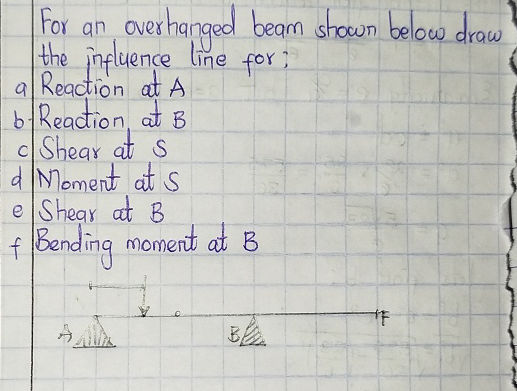 For an overhanged beam shown below draw
the influence line for:
a Reaction at A
b Reaction at B
c Shear at S
d Moment at S
e Shear at B
f Bending moment at B
A
B
F